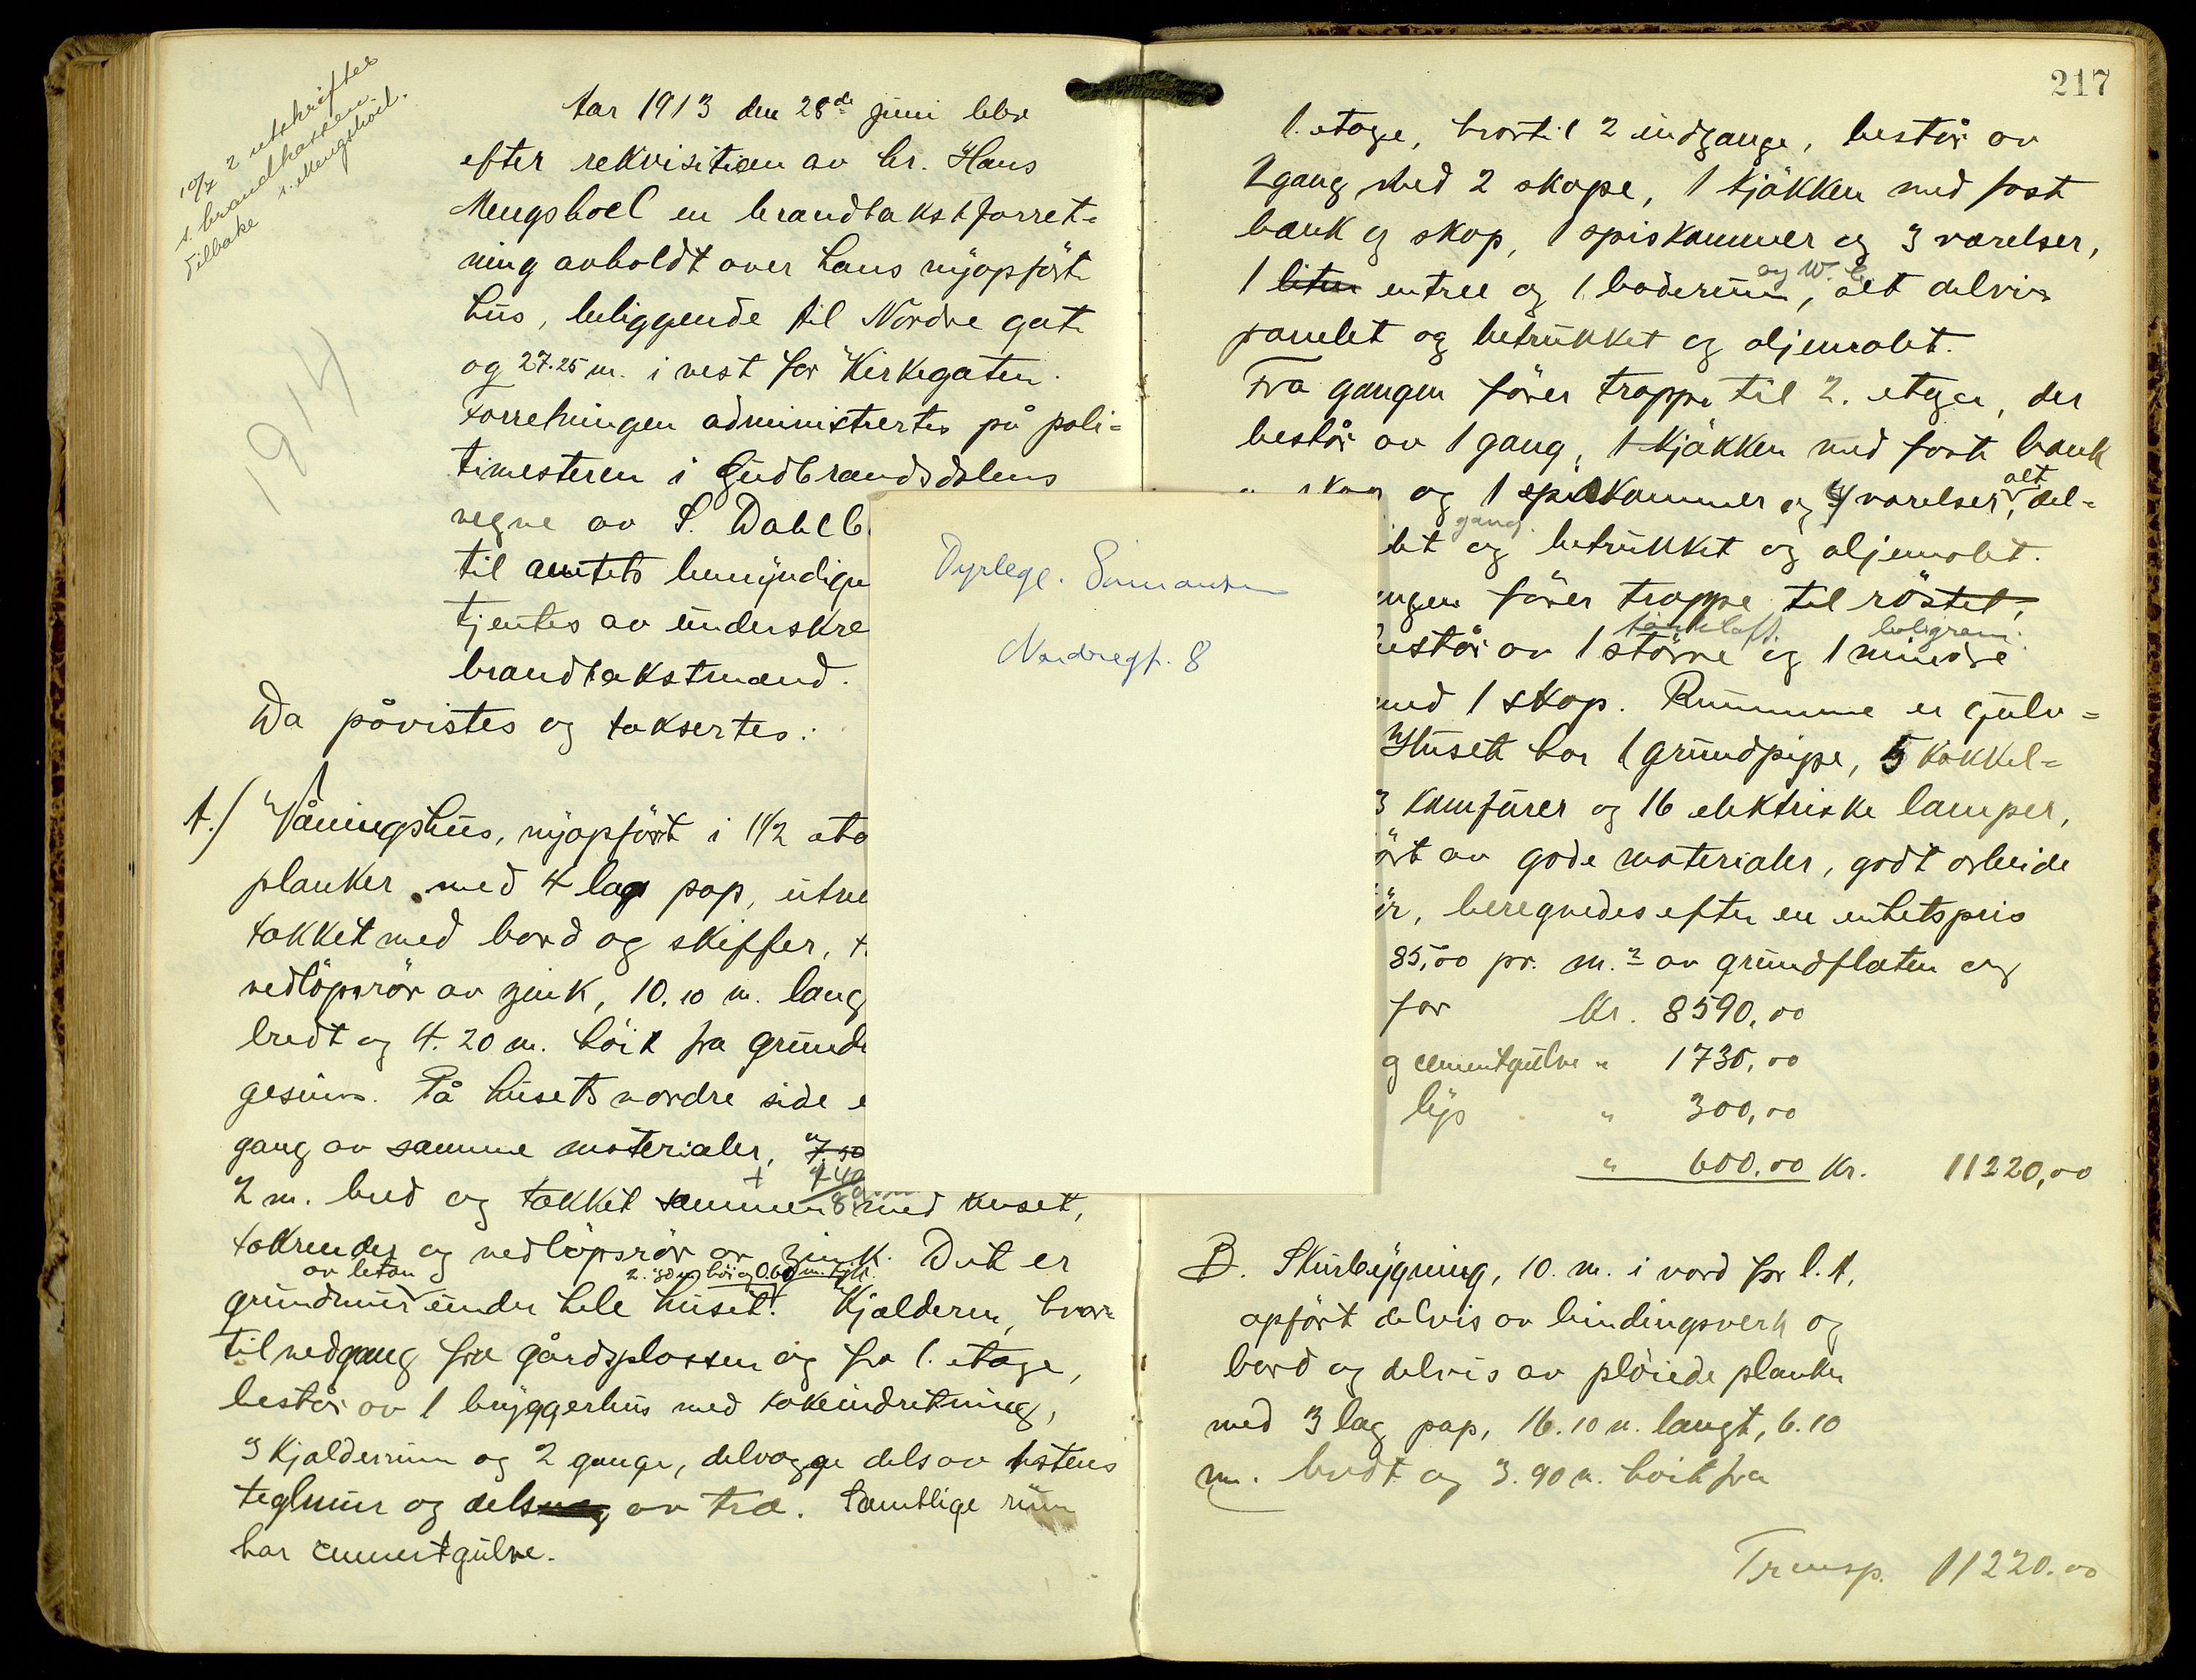 10/7 2 utskrifter
s. brandkassen
tilbake s. Mengshoel.
1914
Aar 1913 den 28de juni blev
efter rekvisition av hr. Hans
Mengshoel en brandtakstforret-
ning avholdt over hans nyopførte
hus, beliggende til Nordre gate
og 27.25 m. i vest for Kirkegaten.
Forretningen administrertes på poli-
timesteren i Gudbrandsdalens
vegne av S. Dahl
til amtets bemyndige
tjentes av underskre
brandtakstmænd.
Da påvistes og taksertes:
A./ Våningshus, nyopført i 1 1/2 eta
planker med 4 lag pap, utve
tækket med bord og skiffer, t
nedløpsrør av zink, 10.10 m. lang
bredt og 4.20 m. høit fra grund
gesims. På husets nordre side e
gang av samme materialer, 7.50
2 m. bred og tækket sammen med huset,
takrender og nedløpsrør av zink. Det er
av beton 2.30 m høi og 0.60 m. tyk.
grundmur under hele huset. Kjælderen, hvor
til nedgang fra gårdsplassen og fra 1. etage,
består av 1 bryggerhus med kokeindretning,
3 kjælderrum og 2 gange, delvægge dels av 1/2 stens
teglmur og dels av træ. Samtlige rum
har cementgulve.
Dyrlege. Simonsen
Nordregt. 8
217
1. etage, hvortil 2 indgange, består av
2 gang med 2 skape, 1 kjøkken med fast
bænk og skap, 1 spiskammer og 3 værelser,
og W. C.
1 liten entree og 1 baderum, alt delvis
panelet og betrukket og oljemalet.
Fra gangen fører trappe til 2. etage, der
består av 1 gang, 1 kjøkken med fast bænk
alt
og skap og 1 spiskammer og 4 værelser, del-
gang.
let og betrukket og oljemalet.
ngen fører trappe til røstet,
tørkeloft. boligrum.
består av 1 større og 1 mindre
med 1 skap. Rummene er gulv-
Huset har 1 grundpipe, 5 kakkel-
3 komfurer og 16 elektriske lamper,
ørt av gode materialer, godt arbeide
ør, beregnedes efter en enhetspris
85,00 pr. m.2 av grundflaten og
for Kr. 8590,00
g cementgulve " 1730,00
lys " 300,00
" 600.00 Kr. 11220,00
B. Skurbygning, 10. m. i nord for l. A,
opført delvis av bindingsverk og
bord og delvis av pløiede planker
med 3 lag pap, 16.10 m. langt, 6.10
m. bredt og 3.90 m. høit fra
Transp. 11220.00